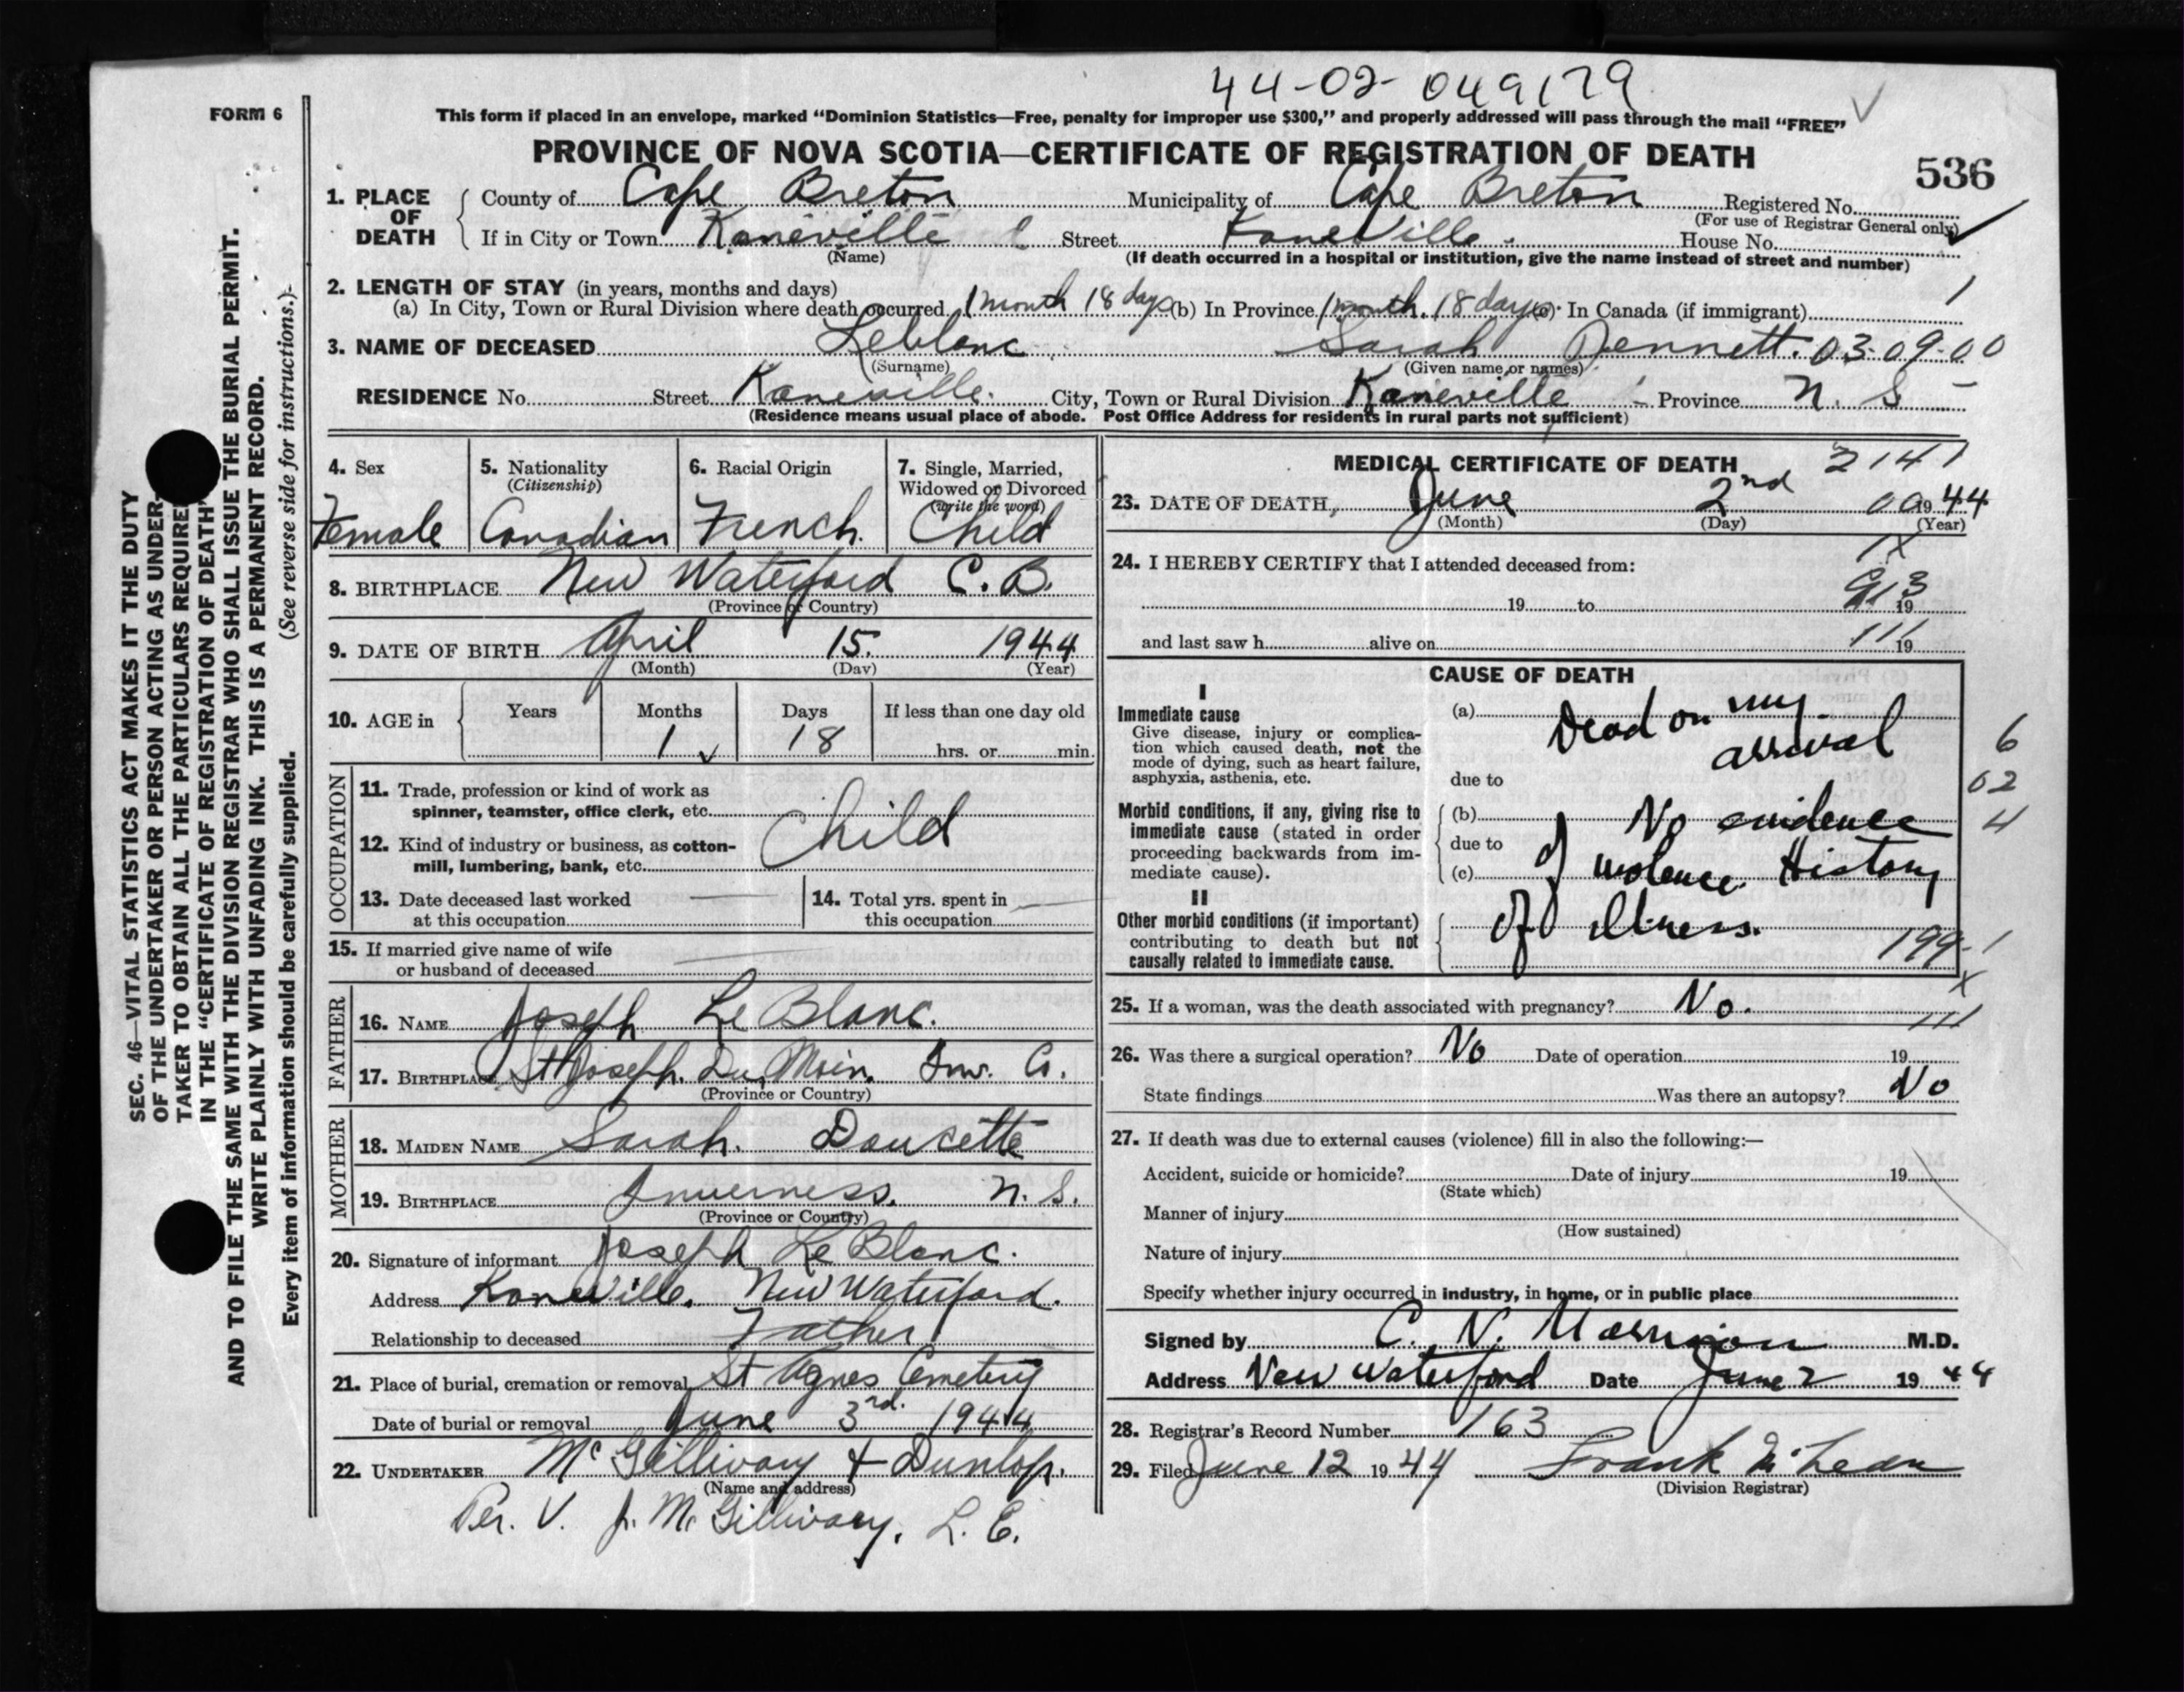 44-02-049179
FORM 6
This form if placed in an envelope, marked "Dominion Statistics—Free, penalty for improper use $300," and properly addressed will pass through the mail "FREE"
PROVINCE OF NOVA SCOTIA—CERTIFICATE OF REGISTRATION OF DEATH
536
1. PLACE OF DEATH { County of Cape Breton Municipality of Cape Breton Registered No.
(For use of Registrar General only)
If in City or Town Kaneville Street Kaneville. House No.
(Name) (If death occurred in a hospital or institution, give the name instead of street and number)
2. LENGTH OF STAY (in years, months and days)
(a) In City, Town or Rural Division where death occurred 1 month 18 days (b) In Province 1 month. 18 days (c) In Canada (if immigrant) 1
3. NAME OF DECEASED Leblanc Sarah Jennett. 03-09-00
(Surname) (Given name or names)
RESIDENCE No. Street Kaneville. City, Town or Rural Division Kaneville Province N. S
(Residence means usual place of abode. Post Office Address for residents in rural parts not sufficient)
4. Sex Female
5. Nationality (Citizenship) Canadian
6. Racial Origin French.
7. Single, Married, Widowed or Divorced (write the word) Child
8. BIRTHPLACE New Waterford C. B.
(Province or Country)
9. DATE OF BIRTH April 15. 1944
(Month) (Day) (Year)
10. AGE in { Years Months Days If less than one day old
1 18 hrs. or min.
OCCUPATION
11. Trade, profession or kind of work as spinner, teamster, office clerk, etc.
12. Kind of industry or business, as cotton-mill, lumbering, bank, etc. Child
13. Date deceased last worked at this occupation
14. Total yrs. spent in this occupation
15. If married give name of wife or husband of deceased
FATHER
16. NAME Joseph Le Blanc.
17. BIRTHPLACE St Joseph. Du. Moin. Inv. Co.
(Province or Country)
MOTHER
18. MAIDEN NAME Sarah. Doucette
19. BIRTHPLACE Inverness. N. S.
(Province or Country)
20. Signature of informant Joseph Le Blanc.
Address Kaneville. New Waterford.
Relationship to deceased Father
21. Place of burial, cremation or removal St Agnes Cemetery
Date of burial or removal June 3rd. 1944
22. UNDERTAKER McGillivary & Dunlop.
(Name and address)
Per. V. J. McGillivary. L. E.
MEDICAL CERTIFICATE OF DEATH 2141
23. DATE OF DEATH, June 2nd 00 1944
(Month) (Day) (Year)
24. I HEREBY CERTIFY that I attended deceased from:
1X
19 to 19
913
and last saw h alive on 19
111
CAUSE OF DEATH
I
Immediate cause
Give disease, injury or complication which caused death, not the mode of dying, such as heart failure, asphyxia, asthenia, etc.
(a) Dead on my arrival
6
due to
02
Morbid conditions, if any, giving rise to immediate cause (stated in order proceeding backwards from immediate cause).
(b) No evidence
4
due to
(c) of violence. History
II
Other morbid conditions (if important) contributing to death but not causally related to immediate cause.
of illness.
199-1
X
25. If a woman, was the death associated with pregnancy? No.
111
26. Was there a surgical operation? No Date of operation 19
State findings Was there an autopsy? No
27. If death was due to external causes (violence) fill in also the following:—
Accident, suicide or homicide? Date of injury 19
(State which)
Manner of injury
(How sustained)
Nature of injury
Specify whether injury occurred in industry, in home, or in public place
Signed by C. N. Morrison M.D.
Address New Waterford Date June 2 1944
28. Registrar's Record Number 163
29. Filed June 12 1944 Frank McLean
(Division Registrar)
SEC. 46—VITAL STATISTICS ACT MAKES IT THE DUTY
OF THE UNDERTAKER OR PERSON ACTING AS UNDER-
TAKER TO OBTAIN ALL THE PARTICULARS REQUIRED
IN THE "CERTIFICATE OF REGISTRATION OF DEATH"
AND TO FILE THE SAME WITH THE DIVISION REGISTRAR WHO SHALL ISSUE THE BURIAL PERMIT.
WRITE PLAINLY WITH UNFADING INK. THIS IS A PERMANENT RECORD.
Every item of information should be carefully supplied. (See reverse side for instructions.)